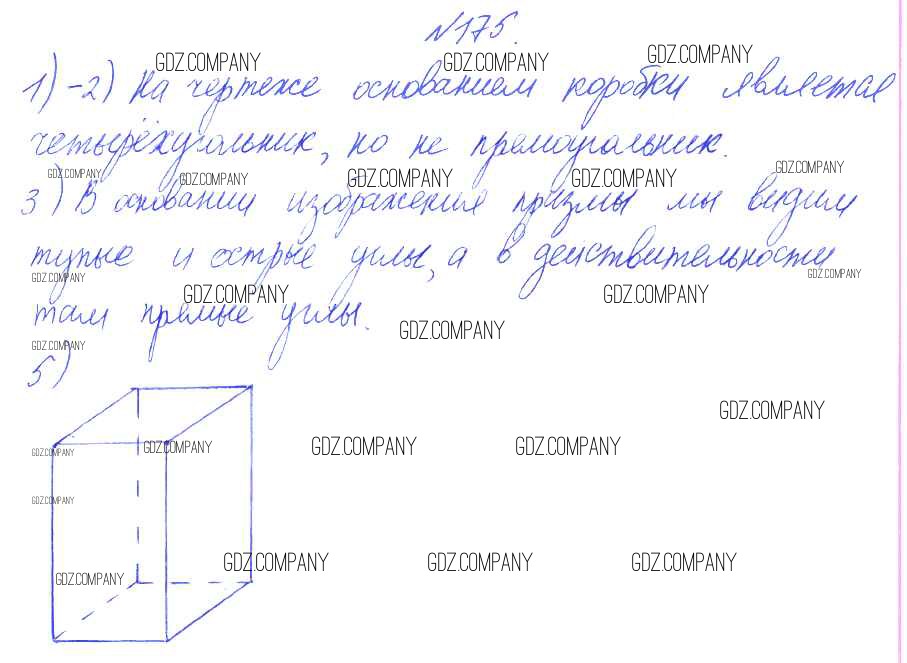 №175.
GDZ.COMPANY GDZ.COMPANY GDZ.COMPANY
1)-2) На чертеже основанием коробки является
четырёхугольник, но не прямоугольник.
GDZ.COMPANY GDZ.COMPANY GDZ.COMPANY GDZ.COMPANY GDZ.COMPANY
3) В основании изображения призмы мы видим
тупые и острые углы, а в действительности
GDZ.COMPANY GDZ.COMPANY GDZ.COMPANY GDZ.COMPANY
там прямые углы.
GDZ.COMPANY GDZ.COMPANY
5)
GDZ.COMPANY
GDZ.COMPANY GDZ.COMPANY GDZ.COMPANY GDZ.COMPANY
GDZ.COMPANY
GDZ.COMPANY GDZ.COMPANY GDZ.COMPANY GDZ.COMPANY